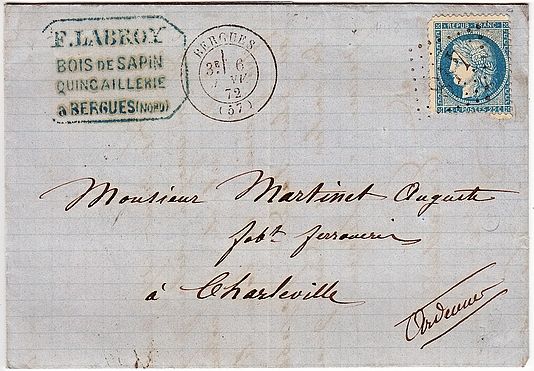 F. LABROY
BOIS DE SAPIN
QUINCAILLERIE
à BERGUES (NORD)
BERGUES
3E 6
72
(57)
REPUB. FRANC.
25 C. POSTES 25 C.
Monsieur Martinet Auguste
fabt. ferronerie
à Charleville
Ardennes